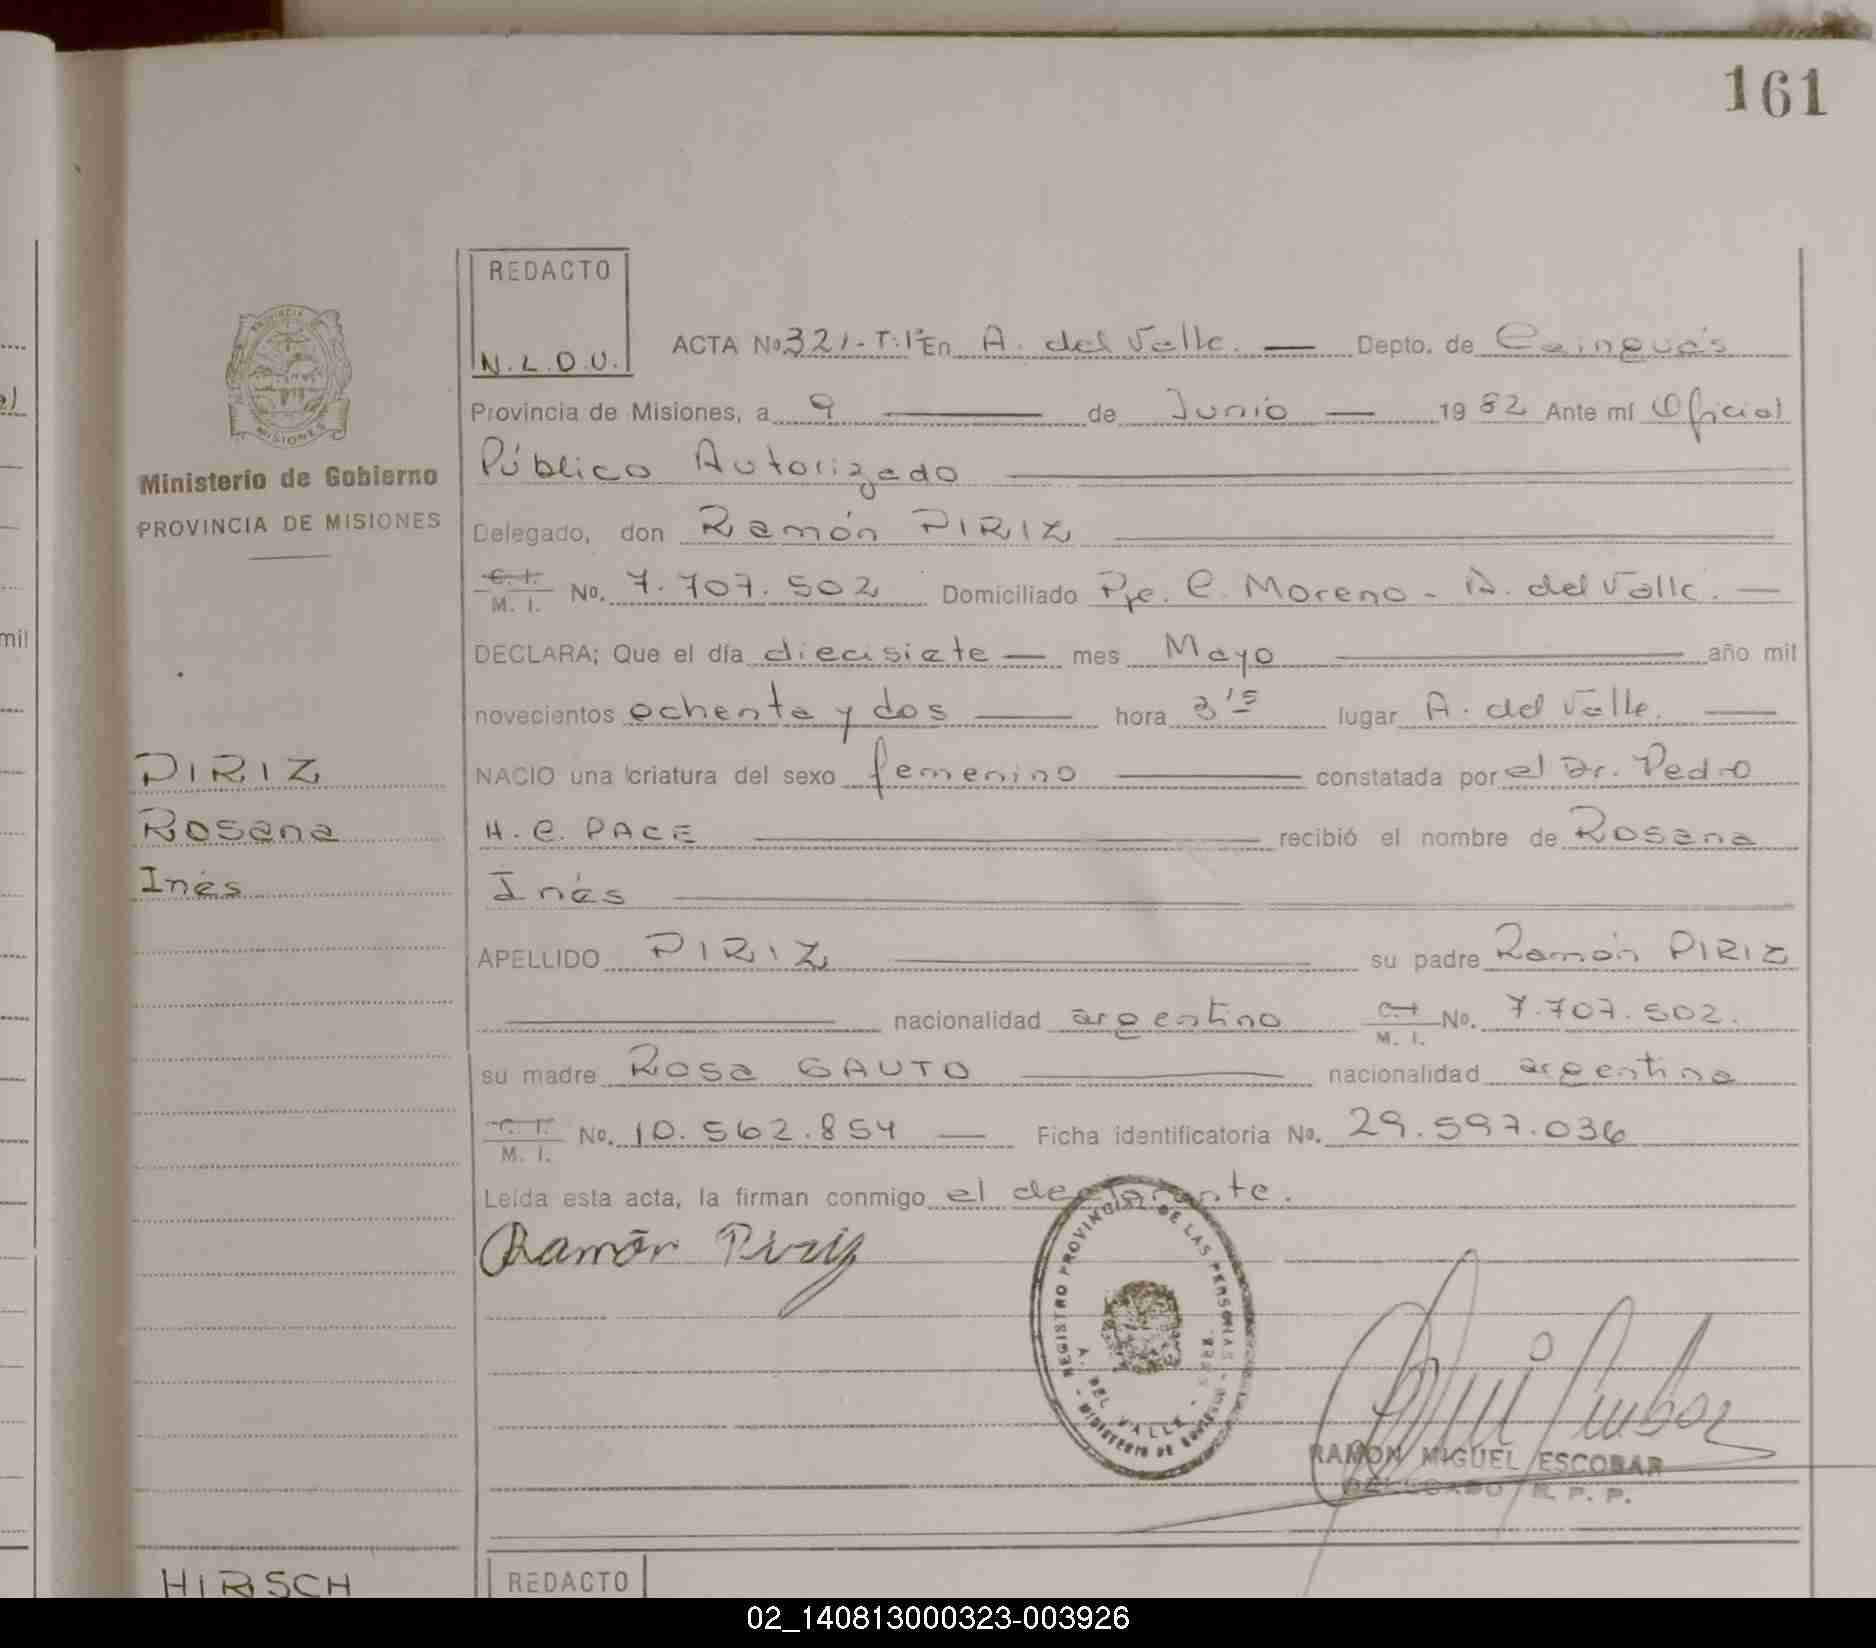 161
REDACTO
N.L.D.U.
ACTA No 321-T:1º En A. del Valle. — Depto. de Cainguás
Provincia de Misiones, a 9 — de Junio — 1982 Ante mí Oficial
Público Autorizado
Delegado, don Ramón PIRIZ
C. I.
M. I. No. 7.707.502 Domiciliado Pje. C. Moreno - A. del Valle. —
DECLARA; Que el día diecisiete — mes Mayo — año mil
novecientos ochenta y dos — hora 3'15 lugar A. del Valle. —
NACIO una criatura del sexo femenino — constatada por el Dr. Pedro
H. C. PACE — recibió el nombre de Rosana
Inés
APELLIDO PIRIZ — su padre Ramón PIRIZ
— nacionalidad argentino C. I.
M. I. No. 7.707.502.
su madre Rosa GAUTO — nacionalidad argentina
C. I.
M. I. No. 10.562.854 — Ficha identificatoria No. 29.597.036
Leída esta acta, la firman conmigo el declarante.
Ramón Piriz
REGISTRO PROVINCIAL DE LAS PERSONAS
MINISTERIO DE
A. DEL VALLE
RAMON MIGUEL ESCOBAR
DELEGADO R. P. P.
PROVINCIA DE
MISIONES
Ministerio de Gobierno
PROVINCIA DE MISIONES
PIRIZ
Rosana
Inés
HIRSCH
REDACTO
mil
02_140813000323-003926